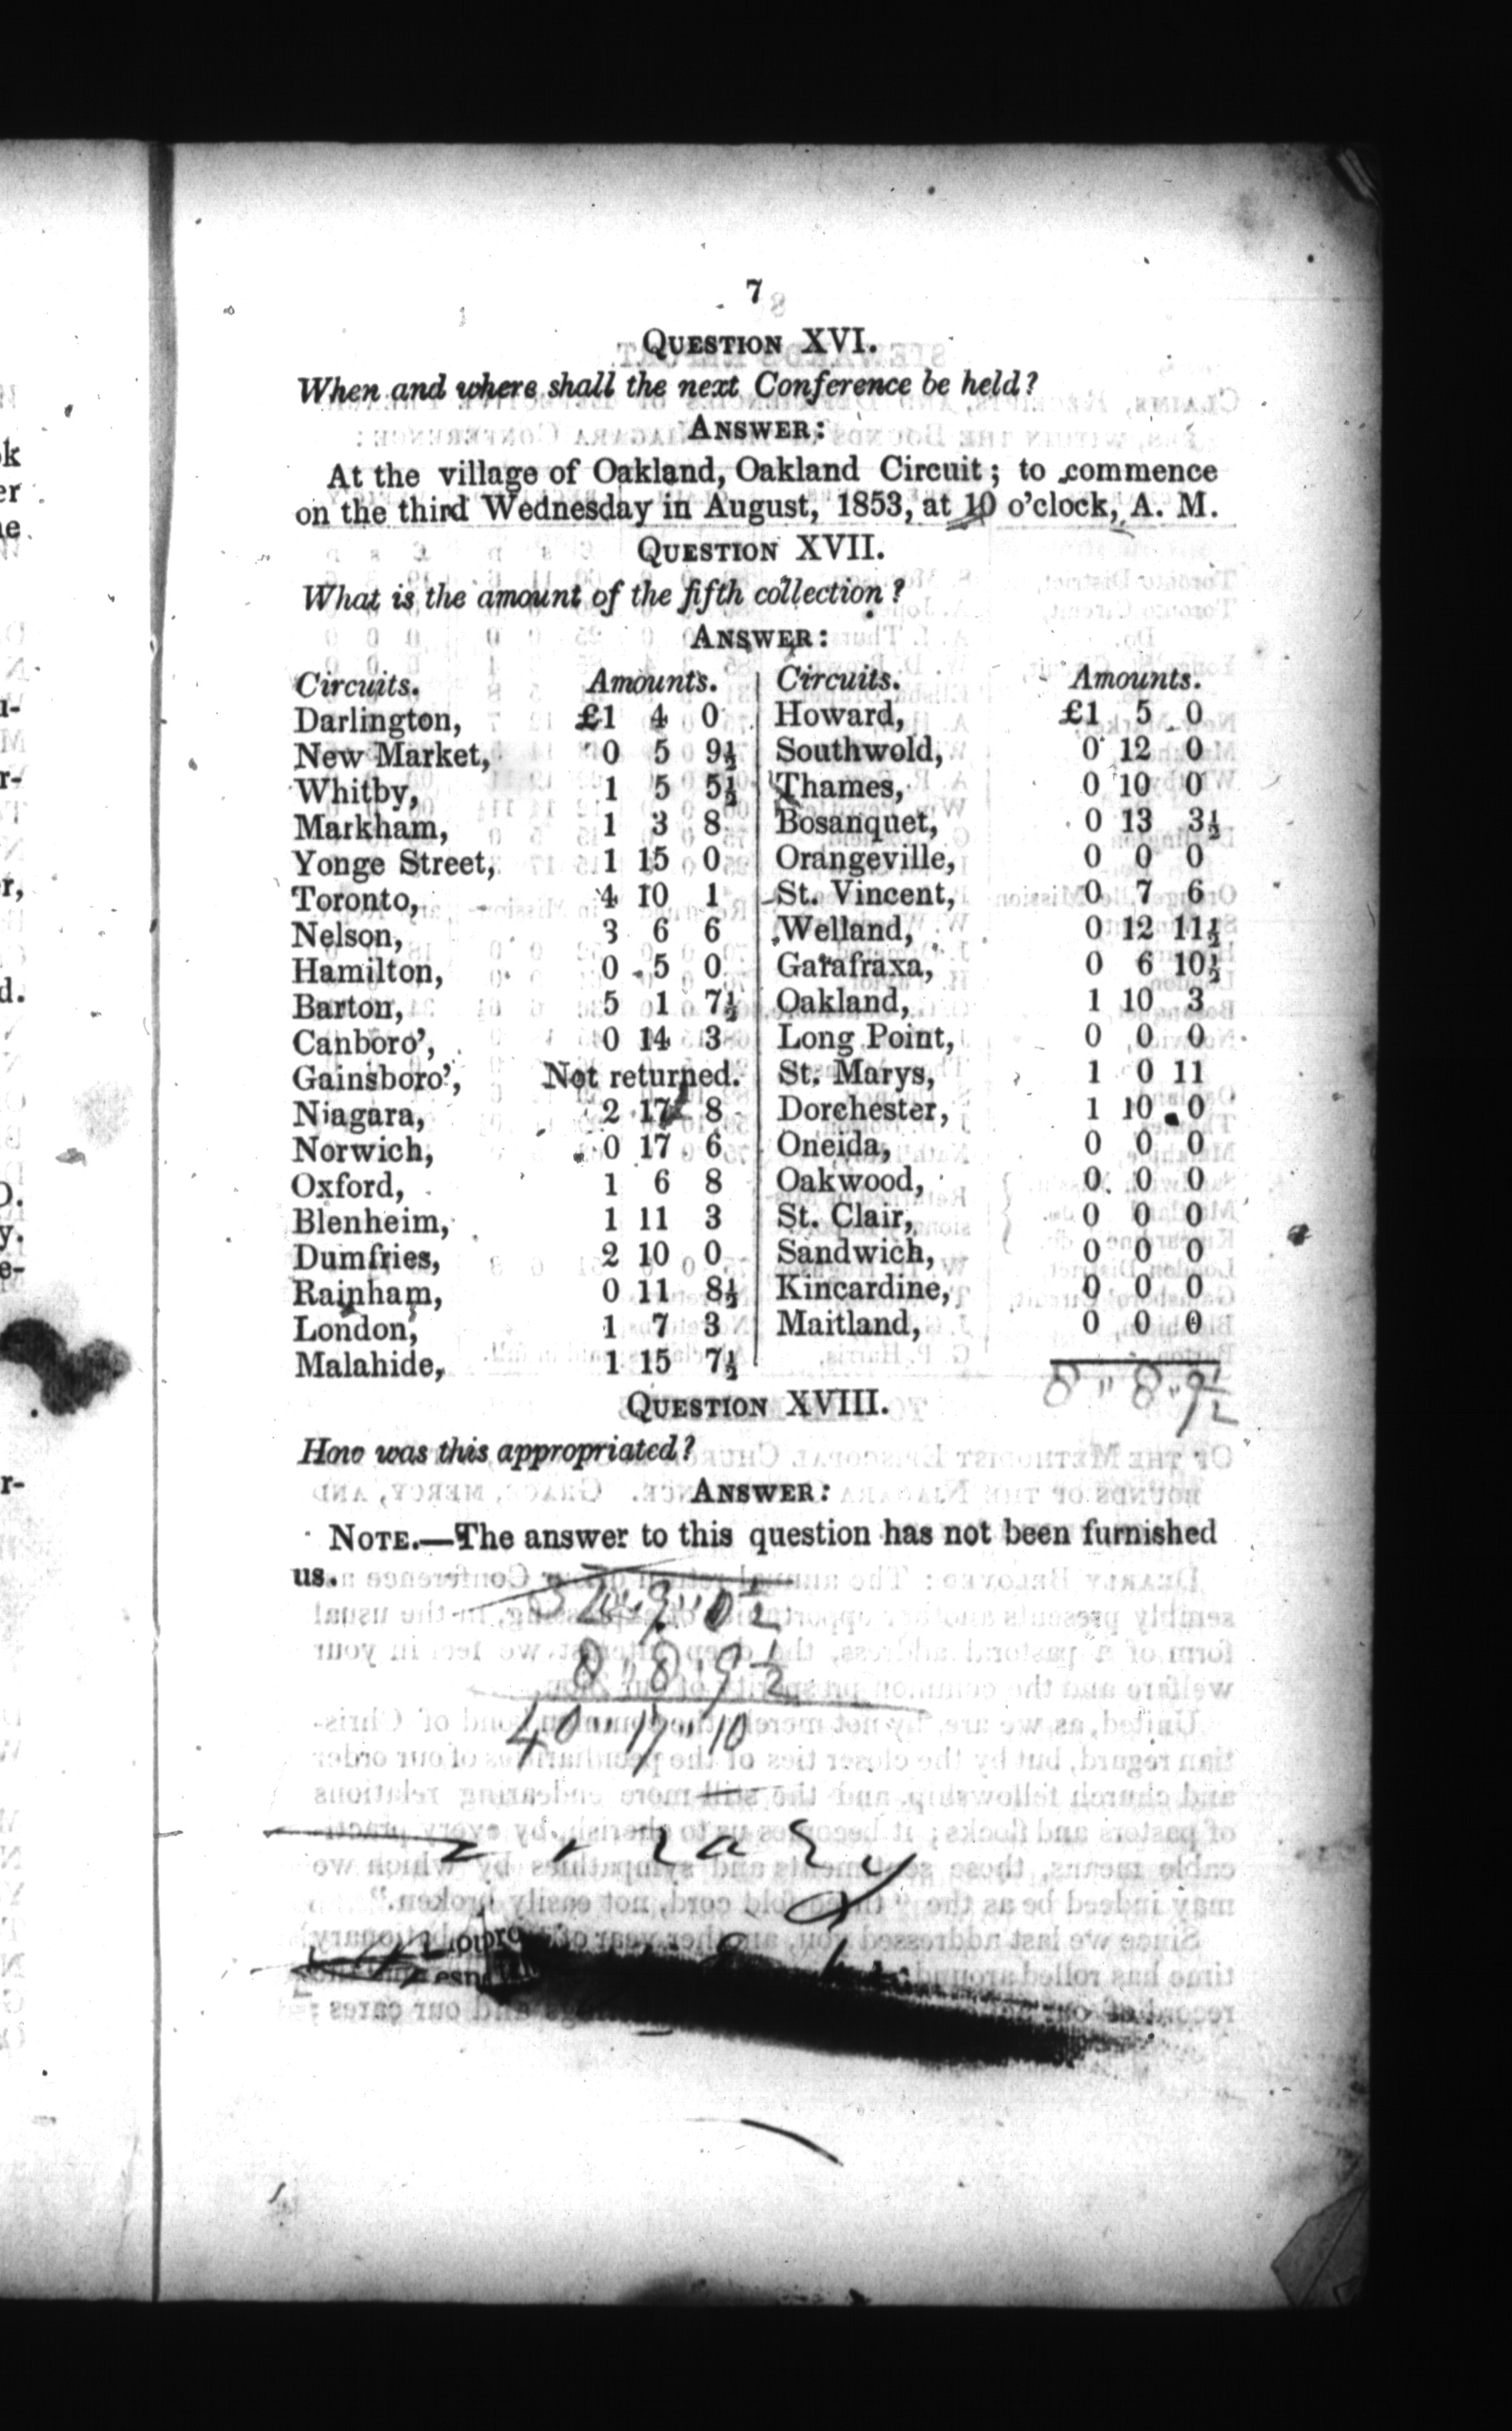 7
QUESTION XVI.
When and where shall the next Conference be held?
ANSWER:
At the village of Oakland, Oakland Circuit; to commence
on the third Wednesday in August, 1853, at 10 o'clock, A. M.
QUESTION XVII.
What is the amount of the fifth collection?
ANSWER:
Circuits. Amounts.
Darlington, £1 4 0
New Market, 0 5 9½
Whitby, 1 5 5½
Markham, 1 3 8
Yonge Street, 1 15 0
Toronto, 4 10 1
Nelson, 3 6 6
Hamilton, 0 5 0
Barton, 5 1 7½
Canboro', 0 14 3
Gainsboro', Not returned.
Niagara, 2 17 8
Norwich, 0 17 6
Oxford, 1 6 8
Blenheim, 1 11 3
Dumfries, 2 10 0
Rainham, 0 11 8½
London, 1 7 3
Malahide, 1 15 7½
Circuits. Amounts.
Howard, £1 5 0
Southwold, 0 12 0
Thames, 0 10 0
Bosanquet, 0 13 3½
Orangeville, 0 0 0
St. Vincent, 0 7 6
Welland, 0 12 11½
Garafraxa, 0 6 10½
Oakland, 1 10 3
Long Point, 0 0 0
St. Marys, 1 0 11
Dorchester, 1 10 0
Oneida, 0 0 0
Oakwood, 0 0 0
St. Clair, 0 0 0
Sandwich, 0 0 0
Kincardine, 0 0 0
Maitland, 0 0 0
8 " 8 " 9½
QUESTION XVIII.
How was this appropriated?
ANSWER:
NOTE.—The answer to this question has not been furnished
us.
32 " 9 " 0½
8 " 8 " 9½
40 " 17 " 10